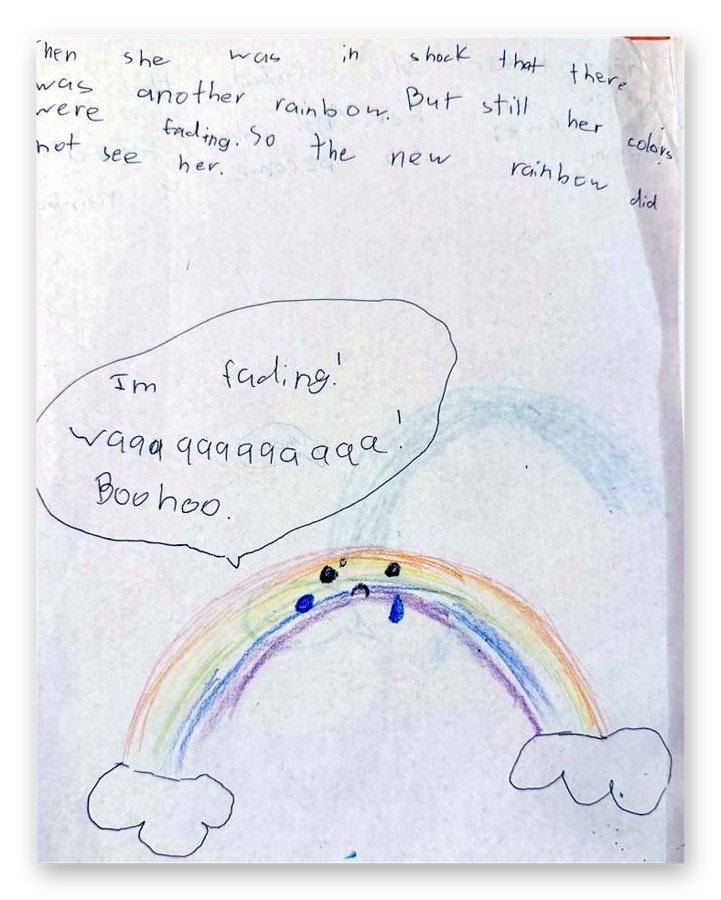 Then she was in shock that there
was another rainbow. But still her colors
were fading. So the new rainbow did
not see her.
Im fading!
waaa aaaaaa aaa!
Boohoo.